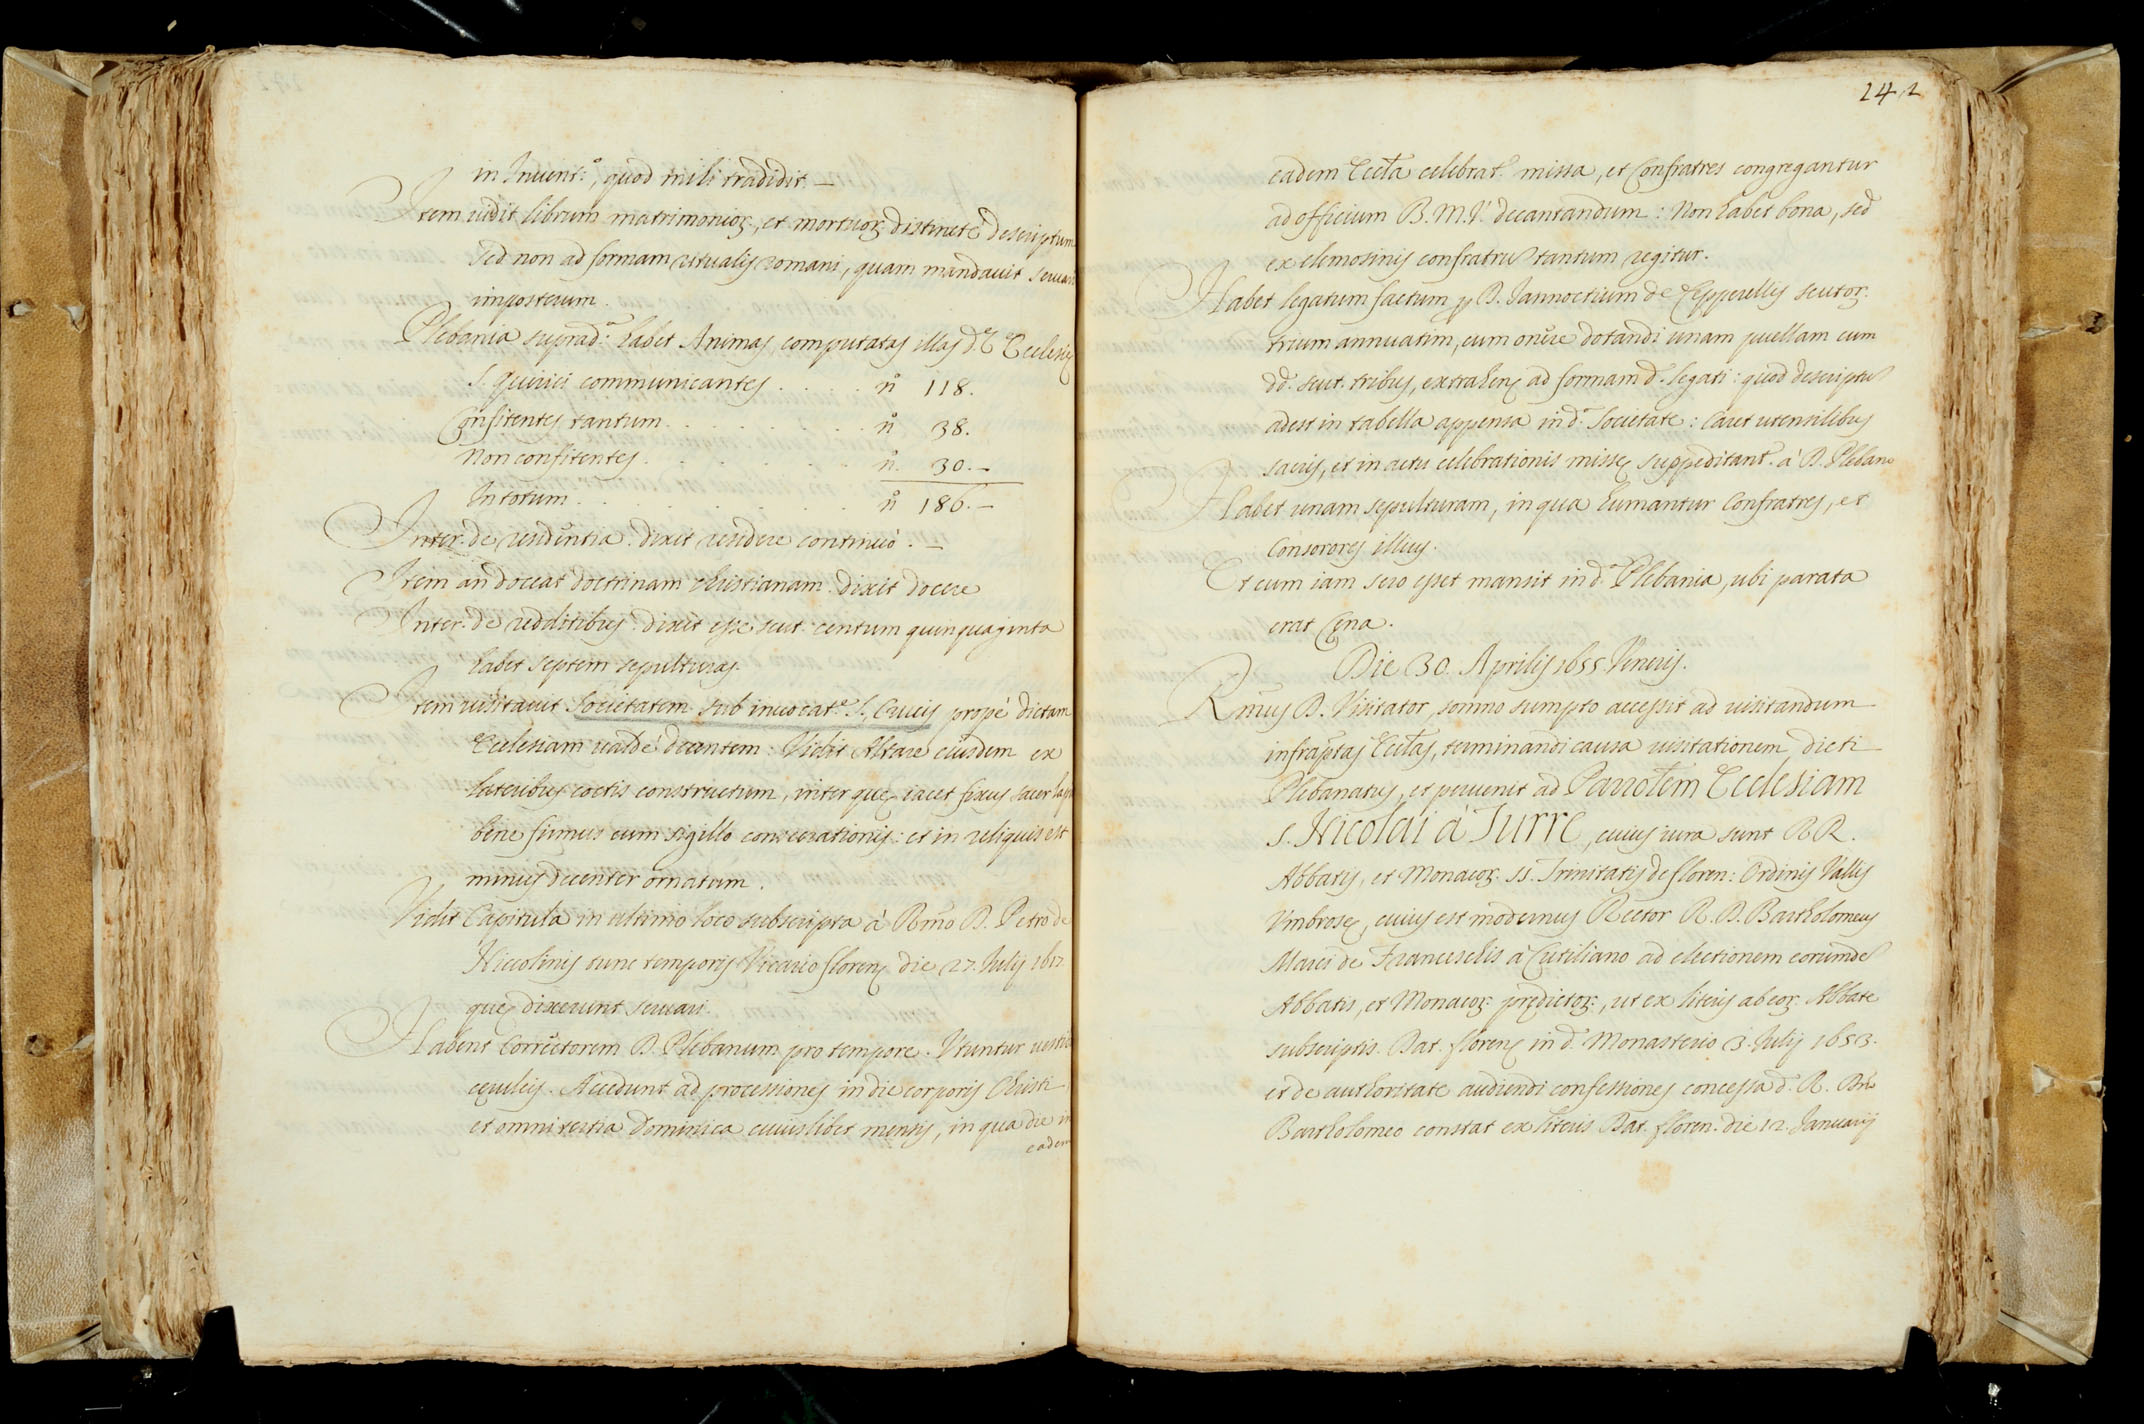 in Inuent.º, quod mihi tradidit. —
Item vidit librum matrimonioꝝ, et mortuoꝝ distinctè descriptum
sed non ad formam ritualis romani, quam mandauit seruari
imposterum.
Plebania suprad.ª habet Animas, computatas illas d.ę Ecclesię
S. Quirici communicantes . . . . nº 118.
Confitentes tantum . . . . . . . . nº 38.
Non confitentes . . . . . . . nº 30. —
In totum . . . . . . . . . nº 186. —
Inter. de residentia: dixit residere continuò. —
Item an doceat doctrinam christianam: dixit docere
Inter. de redditibus: dixit esse scut. centum quinquaginta
habet septem sepulturas.
Item visitauit Societatem sub inuocat.ᵉ S. Crucis propè dictam
Ecclesiam valdè decentem: Vidit Altare eiusdem ex
lateribus coctis constructum, inter quę iacet fixus sacer lapis
bene firmus cum sigillo consecrationis: et in reliquis est
minus decenter ornatum.
Vidit Capitula in ultimo loco subscripta à Rmo D. Petro de
Niccolinis tunc temporis Vicario florenᵉ die 27. Julij 1617.
quę dixerunt seruari.
Habent Correctorem D. Plebanum pro tempore. Vtuntur
cęruleis. Accedunt ad processiones in die corporis Christi
et omni tertia Dominica cuiuslibet mensis, in qua die in
eadem
242
eadem Eccła celebrat.ʳ missa, et Confratres congregantur
ad officium B. M. V. decantandum: Non habet bona, sed
ex elemosinis confratrū tantum regitur.
Habet legatum factum p D. Iannoctium de Cepperellis scutoꝝ
trium annuatim, cum onere dotandi unam puellam cum
dd. scut. tribus, extrahenᵉ ad formam d. legati: quod descriptū
adest in tabella appensa in d.ª Societate: Caret utensilibus
sacris, et in actu celebrationis missę suppeditant.ʳ à D. Plebano
Habet unam sepulturam, in qua humantur Confratres, et
Consorores illius.
Et cum iam sero esset mansit in d.ª Plebania, ubi parata
erat Cęna.
Die 30. Aprilis 1655 Veneris.
Rmus D. Visitator, somno sumpto accessit ad visitandum
infraptas Eccłas, terminandi causa visitationem dicti
Plebanatus, et peruenit ad Parrochłem Ecclesiam
S. Nicolai à Turre, cuius iura sunt RR.
Abbatis, et Monacoꝝ SS. Trinitatis de floren: Ordinis Vallis
Vmbrosę, cuius est modernus Rector R. D. Bartholomeus
Marci de Franceschis à Cutiliano ad electionem eorumdē
Abbatis, et Monacoꝝ prędictoꝝ, ut ex literis ab eoꝝ Abbate
subscriptis. Dat. florenᵉ in d.º Monasterio 3. Julij 1653.
et de authoritate audiendi confessiones concessa d. R. Dño
Bartholomeo constat ex literis Dat. floren. die 12. Januarij